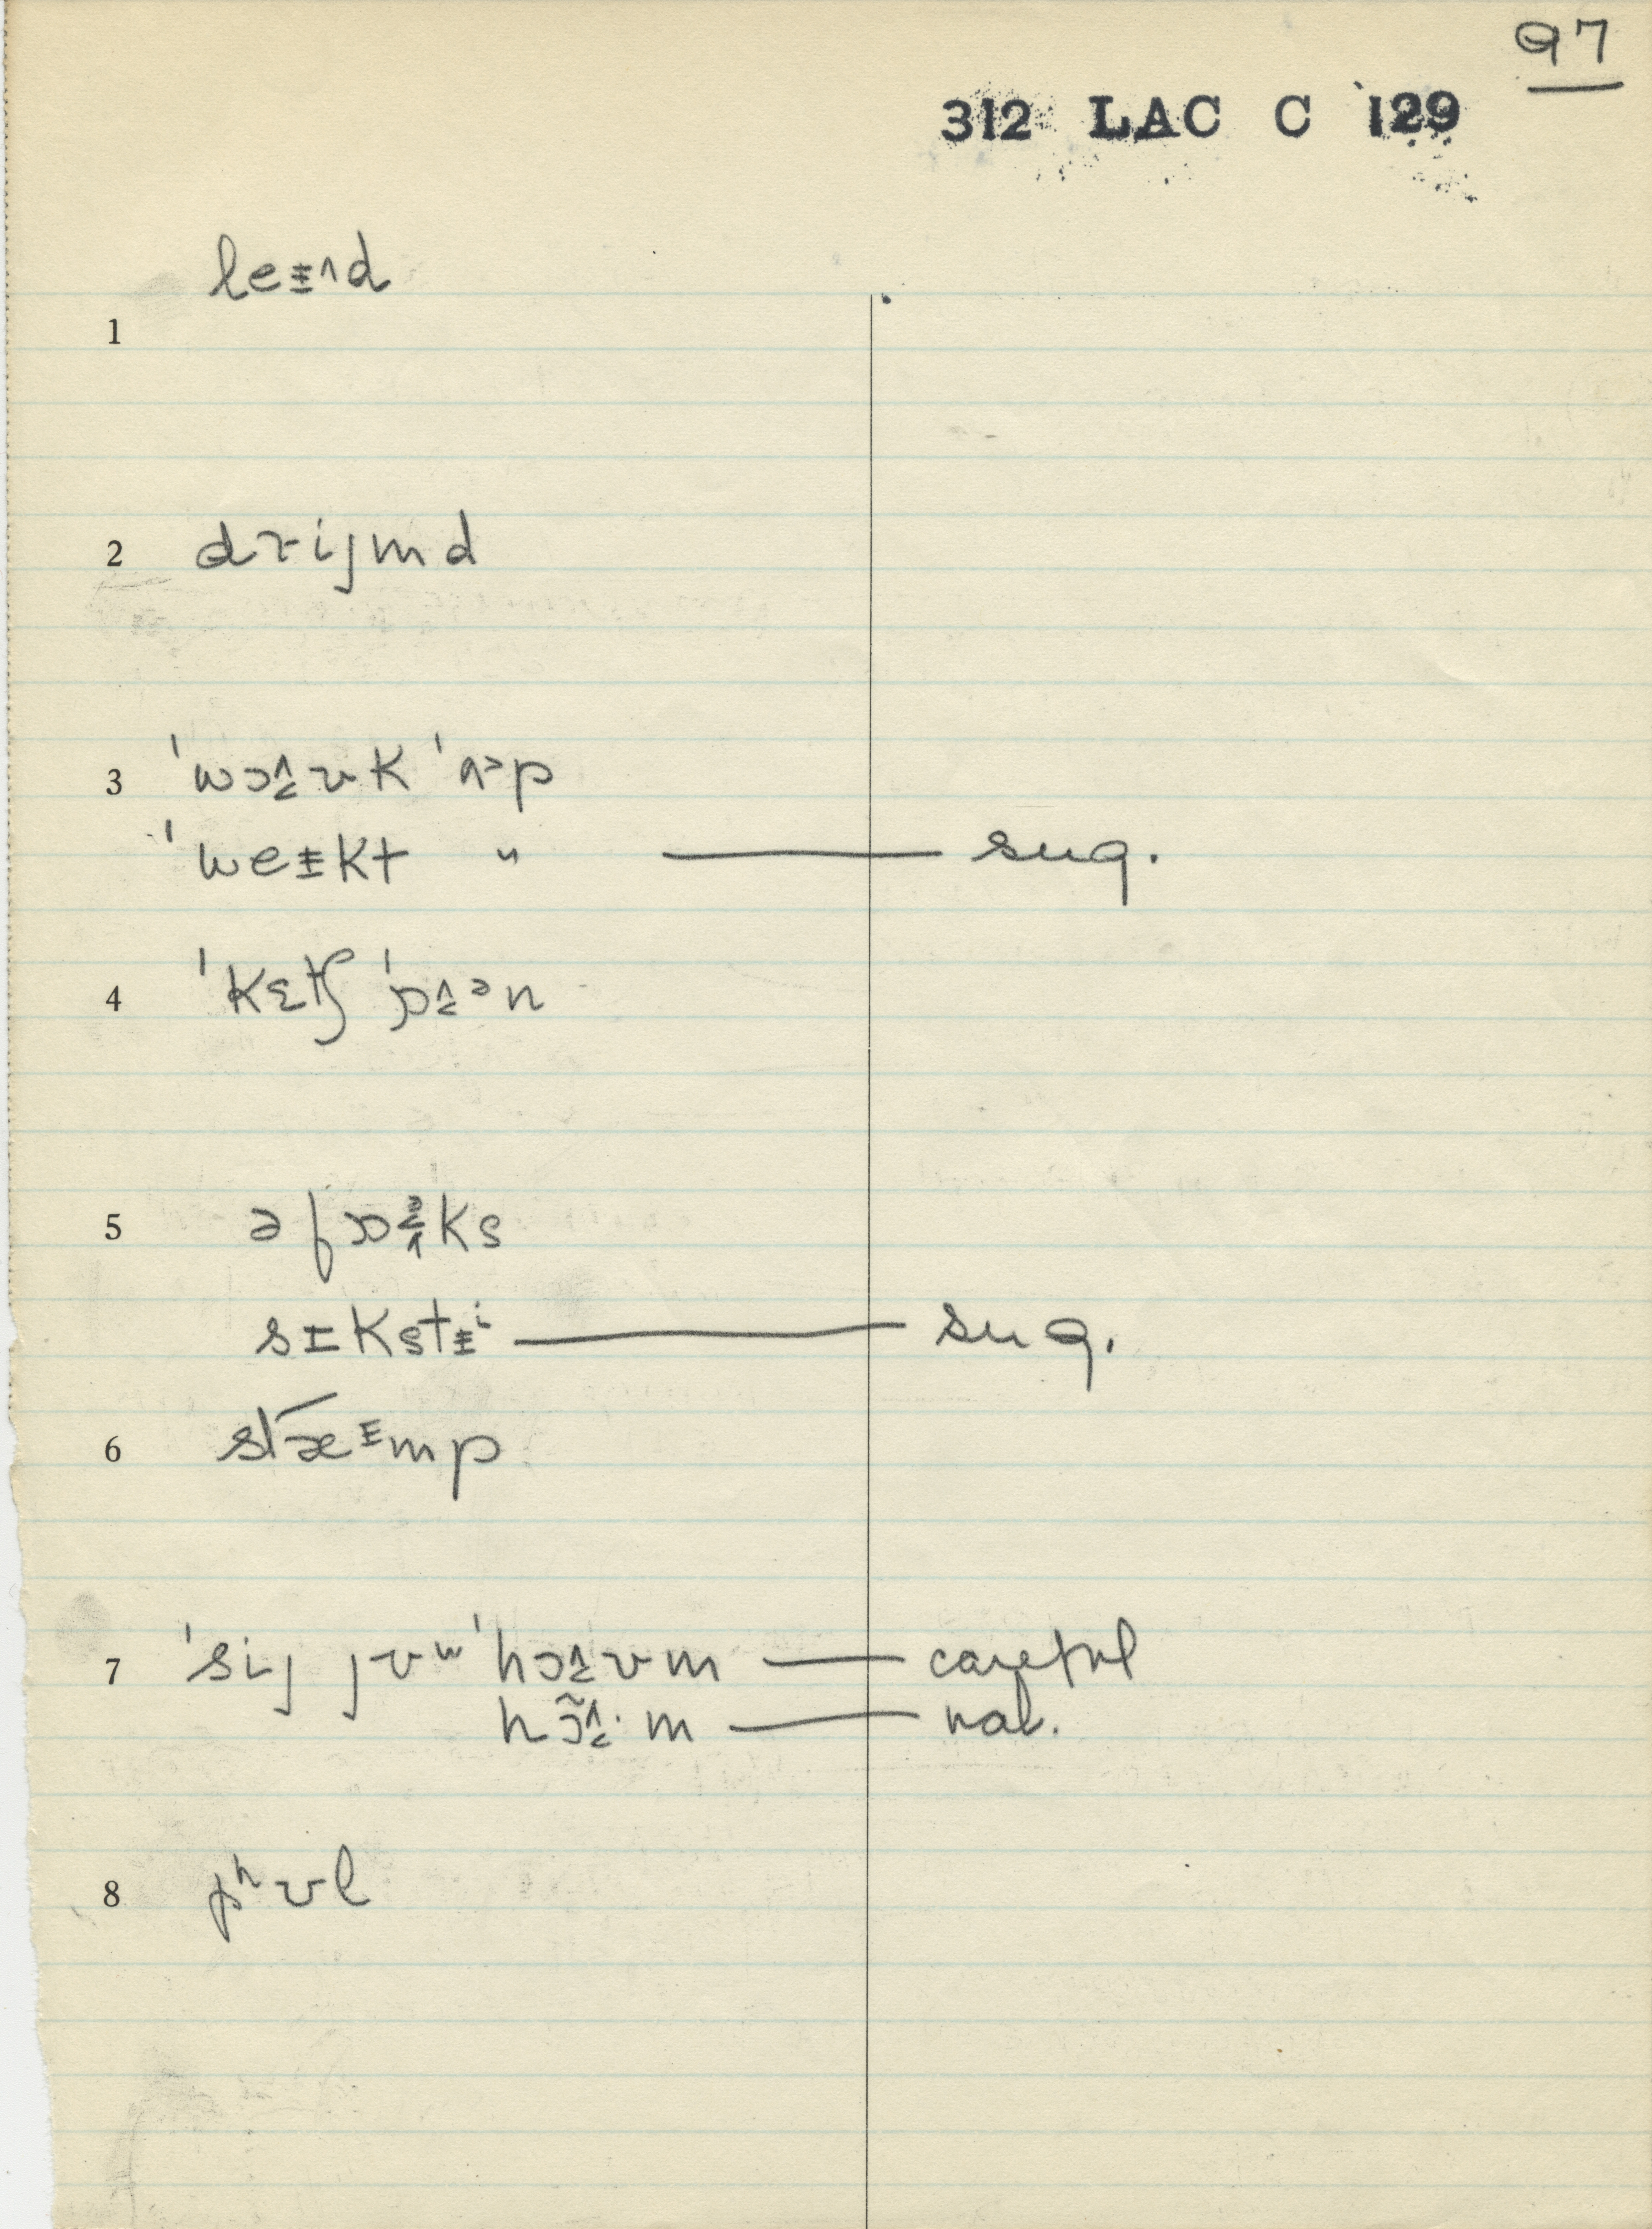 97
312 LAC C 129
1 leɪ̵˄d
2 drijmd
3 'wɔ˄˂ʊk 'ʌᵊp
'weɪ̵kt " — sug.
4 'kɛtʃ 'ɒ˄˂ᵊn
5 ə fɒks
sɪkstɪ̵ⁱ — sug.
6 stæᶦmp
7 'sij jʊʷ 'hɔ˄˂ʊm — careful
hɔ̃˄˂· m — nat.
8 pʰʊl